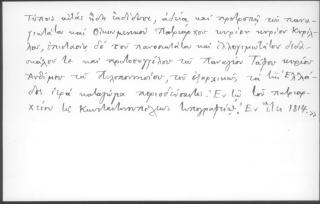 Τύποις αὐτὰς ἤδη ἐκδίδοσε, ἀδείᾳ καὶ προτροπῇ τοῦ πανα-
γιωτάτου καὶ Οἰκουμενικοῦ Πατριάρχου κυρίου κυρίου Κυρίλ-
λου, ἐπιστασίᾳ δὲ τοῦ πανοσιωτάτου καὶ ἐλλογιμωτάτου διδα-
σκάλου τε καὶ πρωτοσυγγέλου τοῦ Παναγίου Τάφου κυρίου
Ἀνθίμου τοῦ Πελοποννησίου, τοῦ ἐξαρχικῶς τὰ τῇ Ἑλλά-
δος ἱερὰ καταγώγια περιοδεύσαντος. Ἐν τῷ τοῦ πατριαρ-
χείου τῆς Κωνσταντινουπόλεως τυπογραφείῳ. Ἐν ἔτει 1814.»